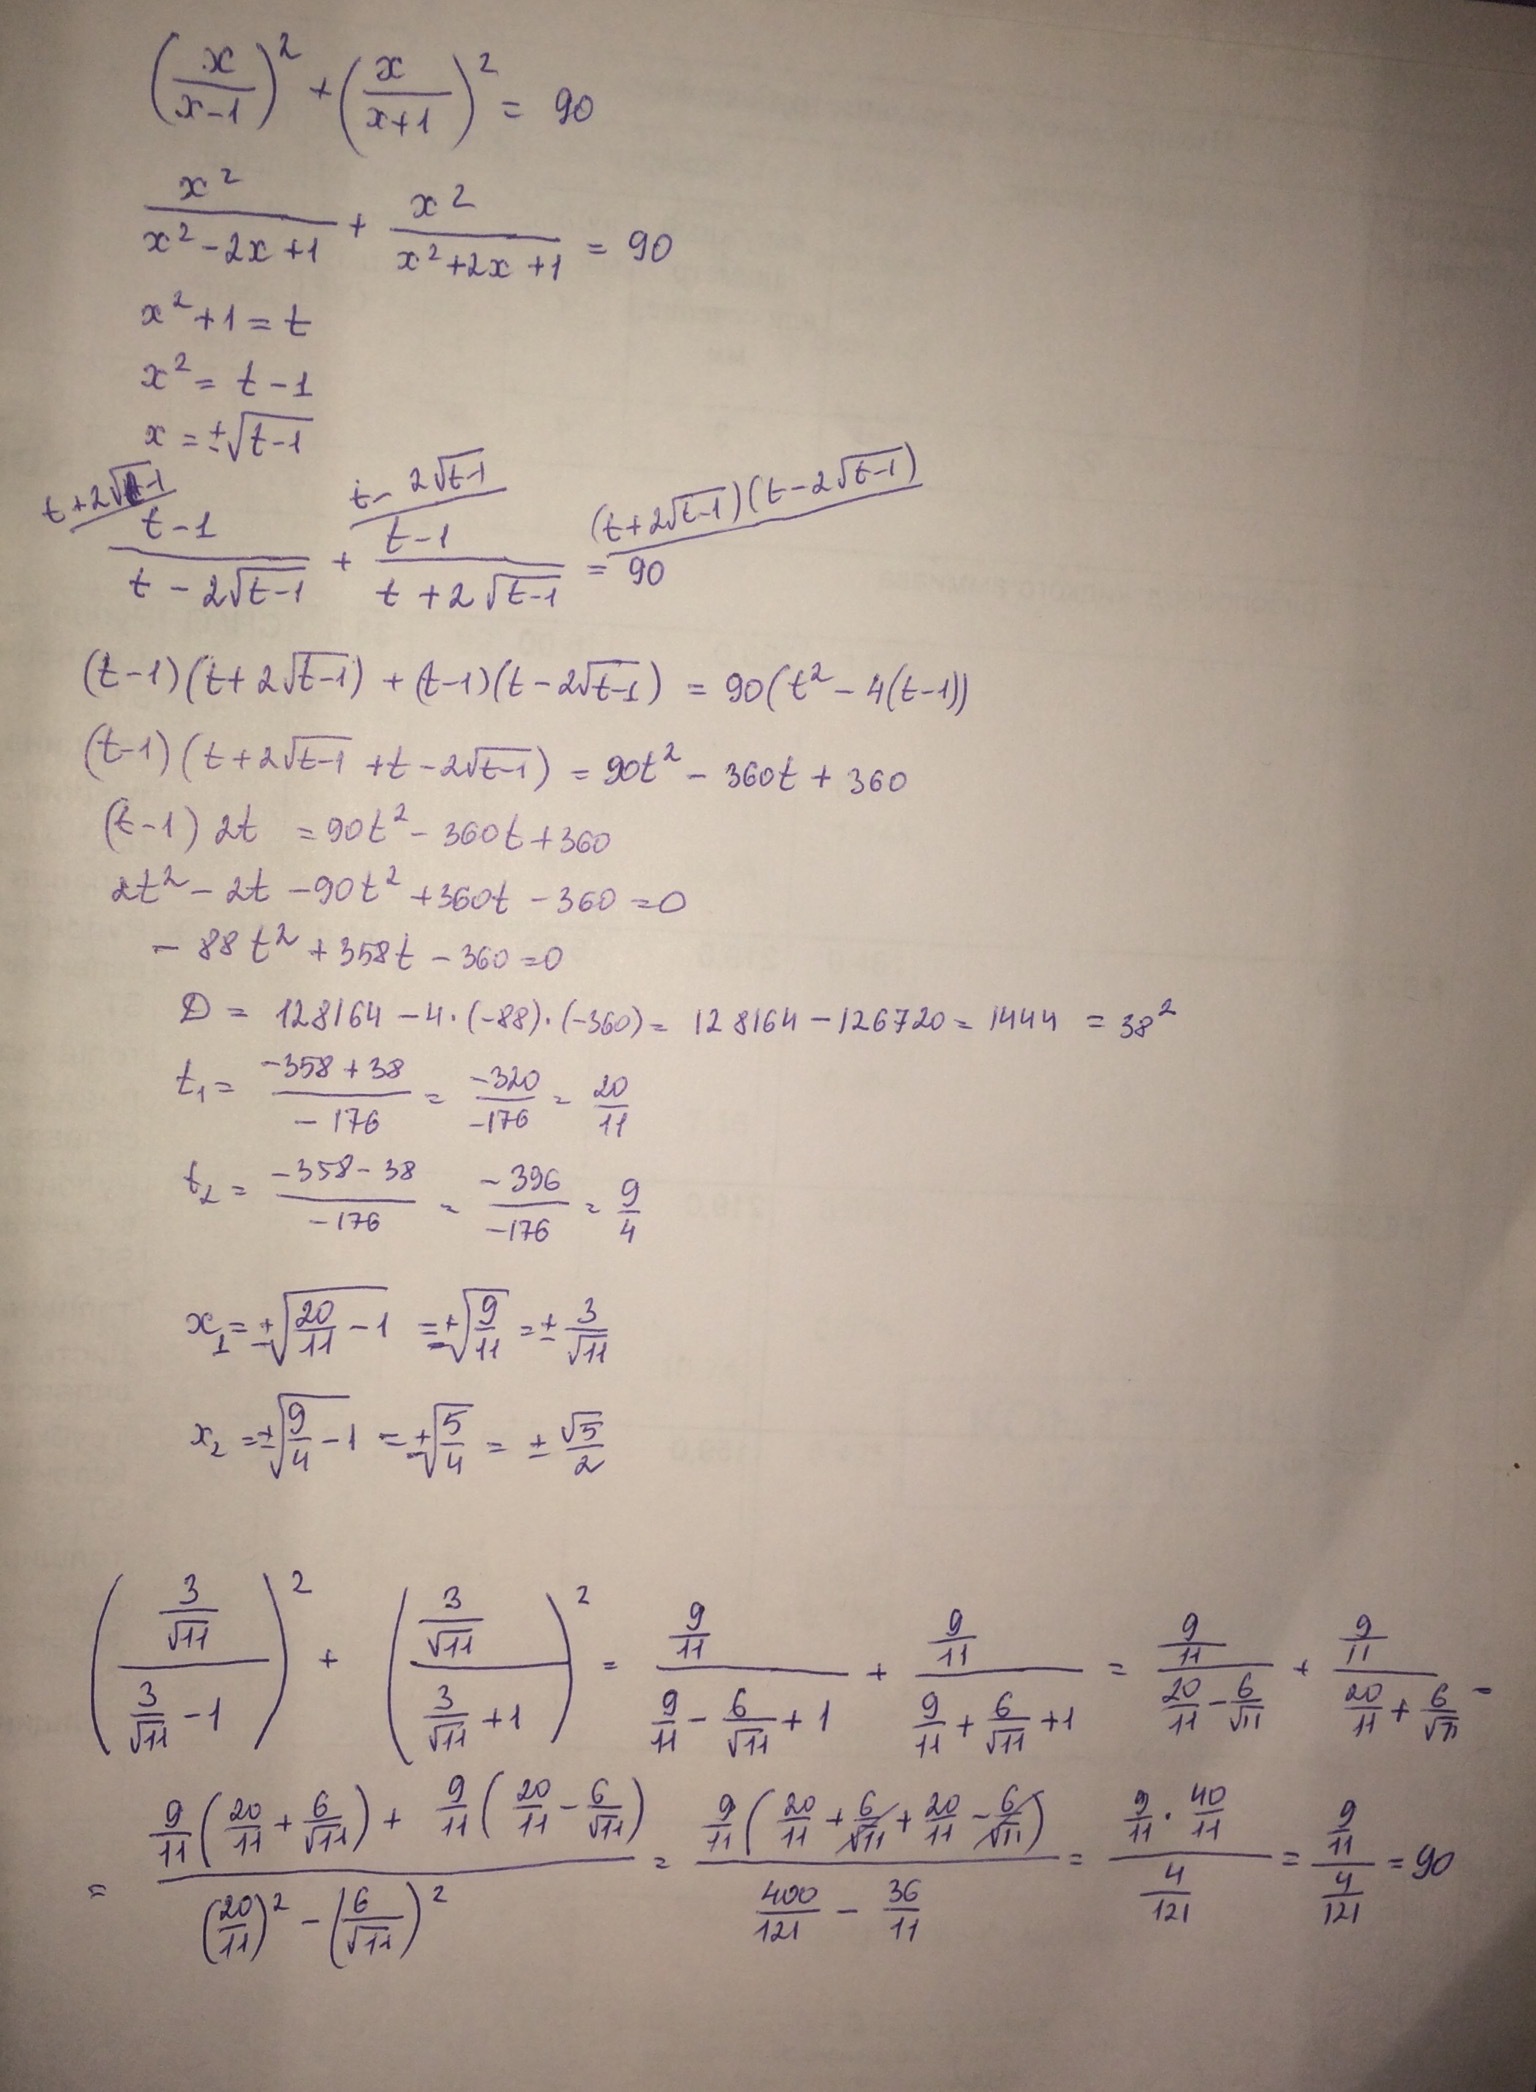 (x/(x-1))² + (x/(x+1))² = 90
x²/(x²-2x+1) + x²/(x²+2x+1) = 90
x²+1 = t
x² = t-1
x = ±√(t-1)
t+2√(t-1) t-2√(t-1) (t+2√(t-1))(t-2√(t-1))
(t-1)/(t-2√(t-1)) + (t-1)/(t+2√(t-1)) = 90
(t-1)(t+2√(t-1)) + (t-1)(t-2√(t-1)) = 90(t²-4(t-1))
(t-1)(t+2√(t-1)+t-2√(t-1)) = 90t²-360t+360
(t-1)2t = 90t²-360t+360
2t²-2t-90t²+360t-360=0
-88t²+358t-360=0
D = 128164-4·(-88)·(-360) = 128164-126720 = 1444 = 38²
t₁ = (-358+38)/(-176) = -320/-176 = 20/11
t₂ = (-358-38)/(-176) = -396/-176 = 9/4
x₁ = ±√(20/11-1) = ±√(9/11) = ±3/√11
x₂ = ±√(9/4-1) = ±√(5/4) = ±√5/2
((3/√11)/(3/√11-1))² + ((3/√11)/(3/√11+1))² = (9/11)/(9/11-6/√11+1) + (9/11)/(9/11+6/√11+1) = (9/11)/(20/11-6/√11) + (9/11)/(20/11+6/√11) =
= (9/11(20/11+6/√11)+9/11(20/11-6/√11))/((20/11)²-(6/√11)²) = (9/11(20/11+6/√11+20/11-6/√11))/(400/121-36/11) = (9/11·40/11)/(4/121) = (9/11)/(4/121) = 90